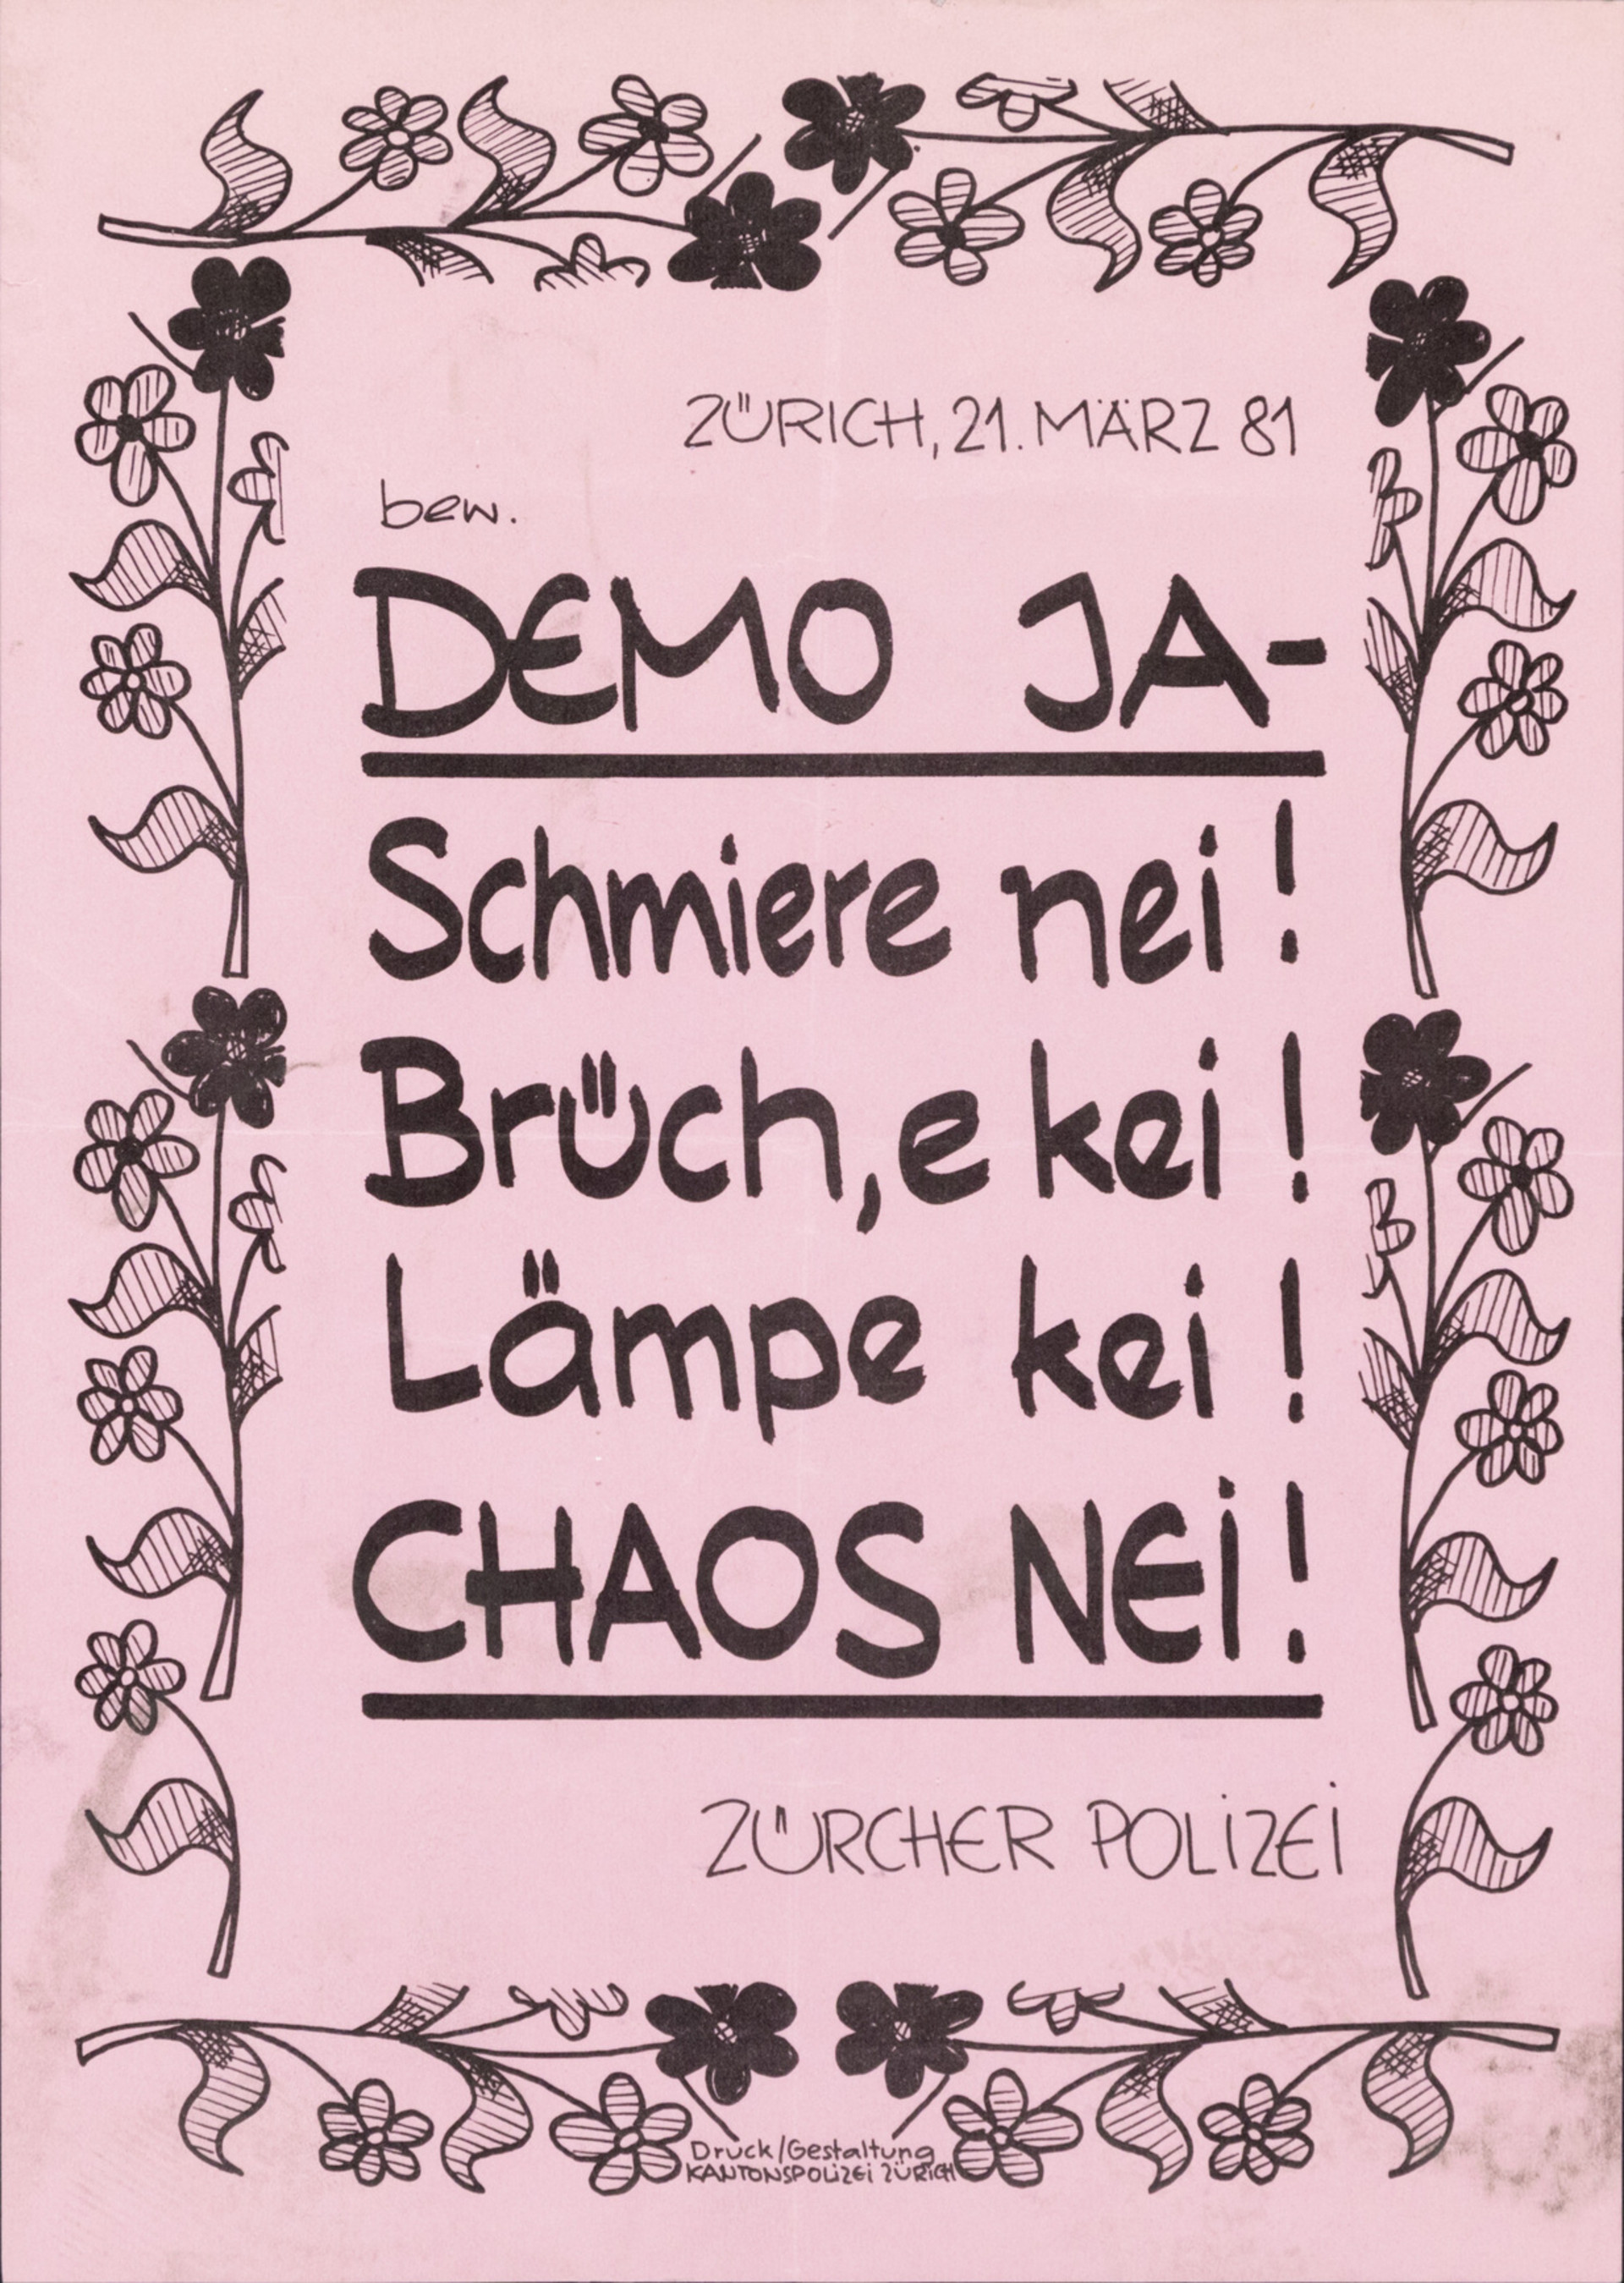 ZÜRICH, 21. MÄRZ 81
bew.
DEMO JA-
Schmiere nei!
Brüch,e kei!
Lämpe kei!
CHAOS NEi!
ZÜRCHER POLiZEi
Druck/Gestaltung
KANTONSPOLiZEi ZÜRiCH